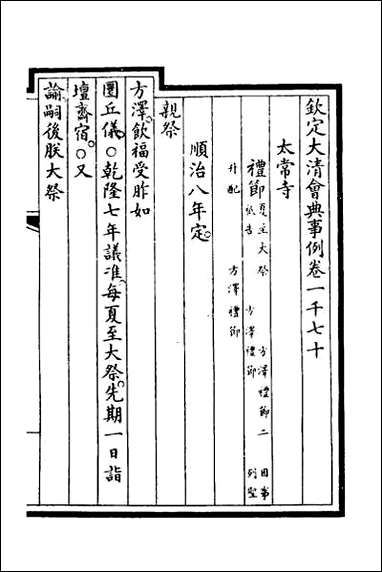 欽定大清會典事例卷一千七十
太常寺
禮節夏至大祭 方澤禮節二 因事
祗告 方澤禮節 列聖
升配 方澤禮節
順治八年定。
親祭
方澤。飲福受胙如
圜丘儀。○乾隆七年議准。每夏至大祭。先期一日詣
壇齋宿。○又
諭嗣後朕大祭